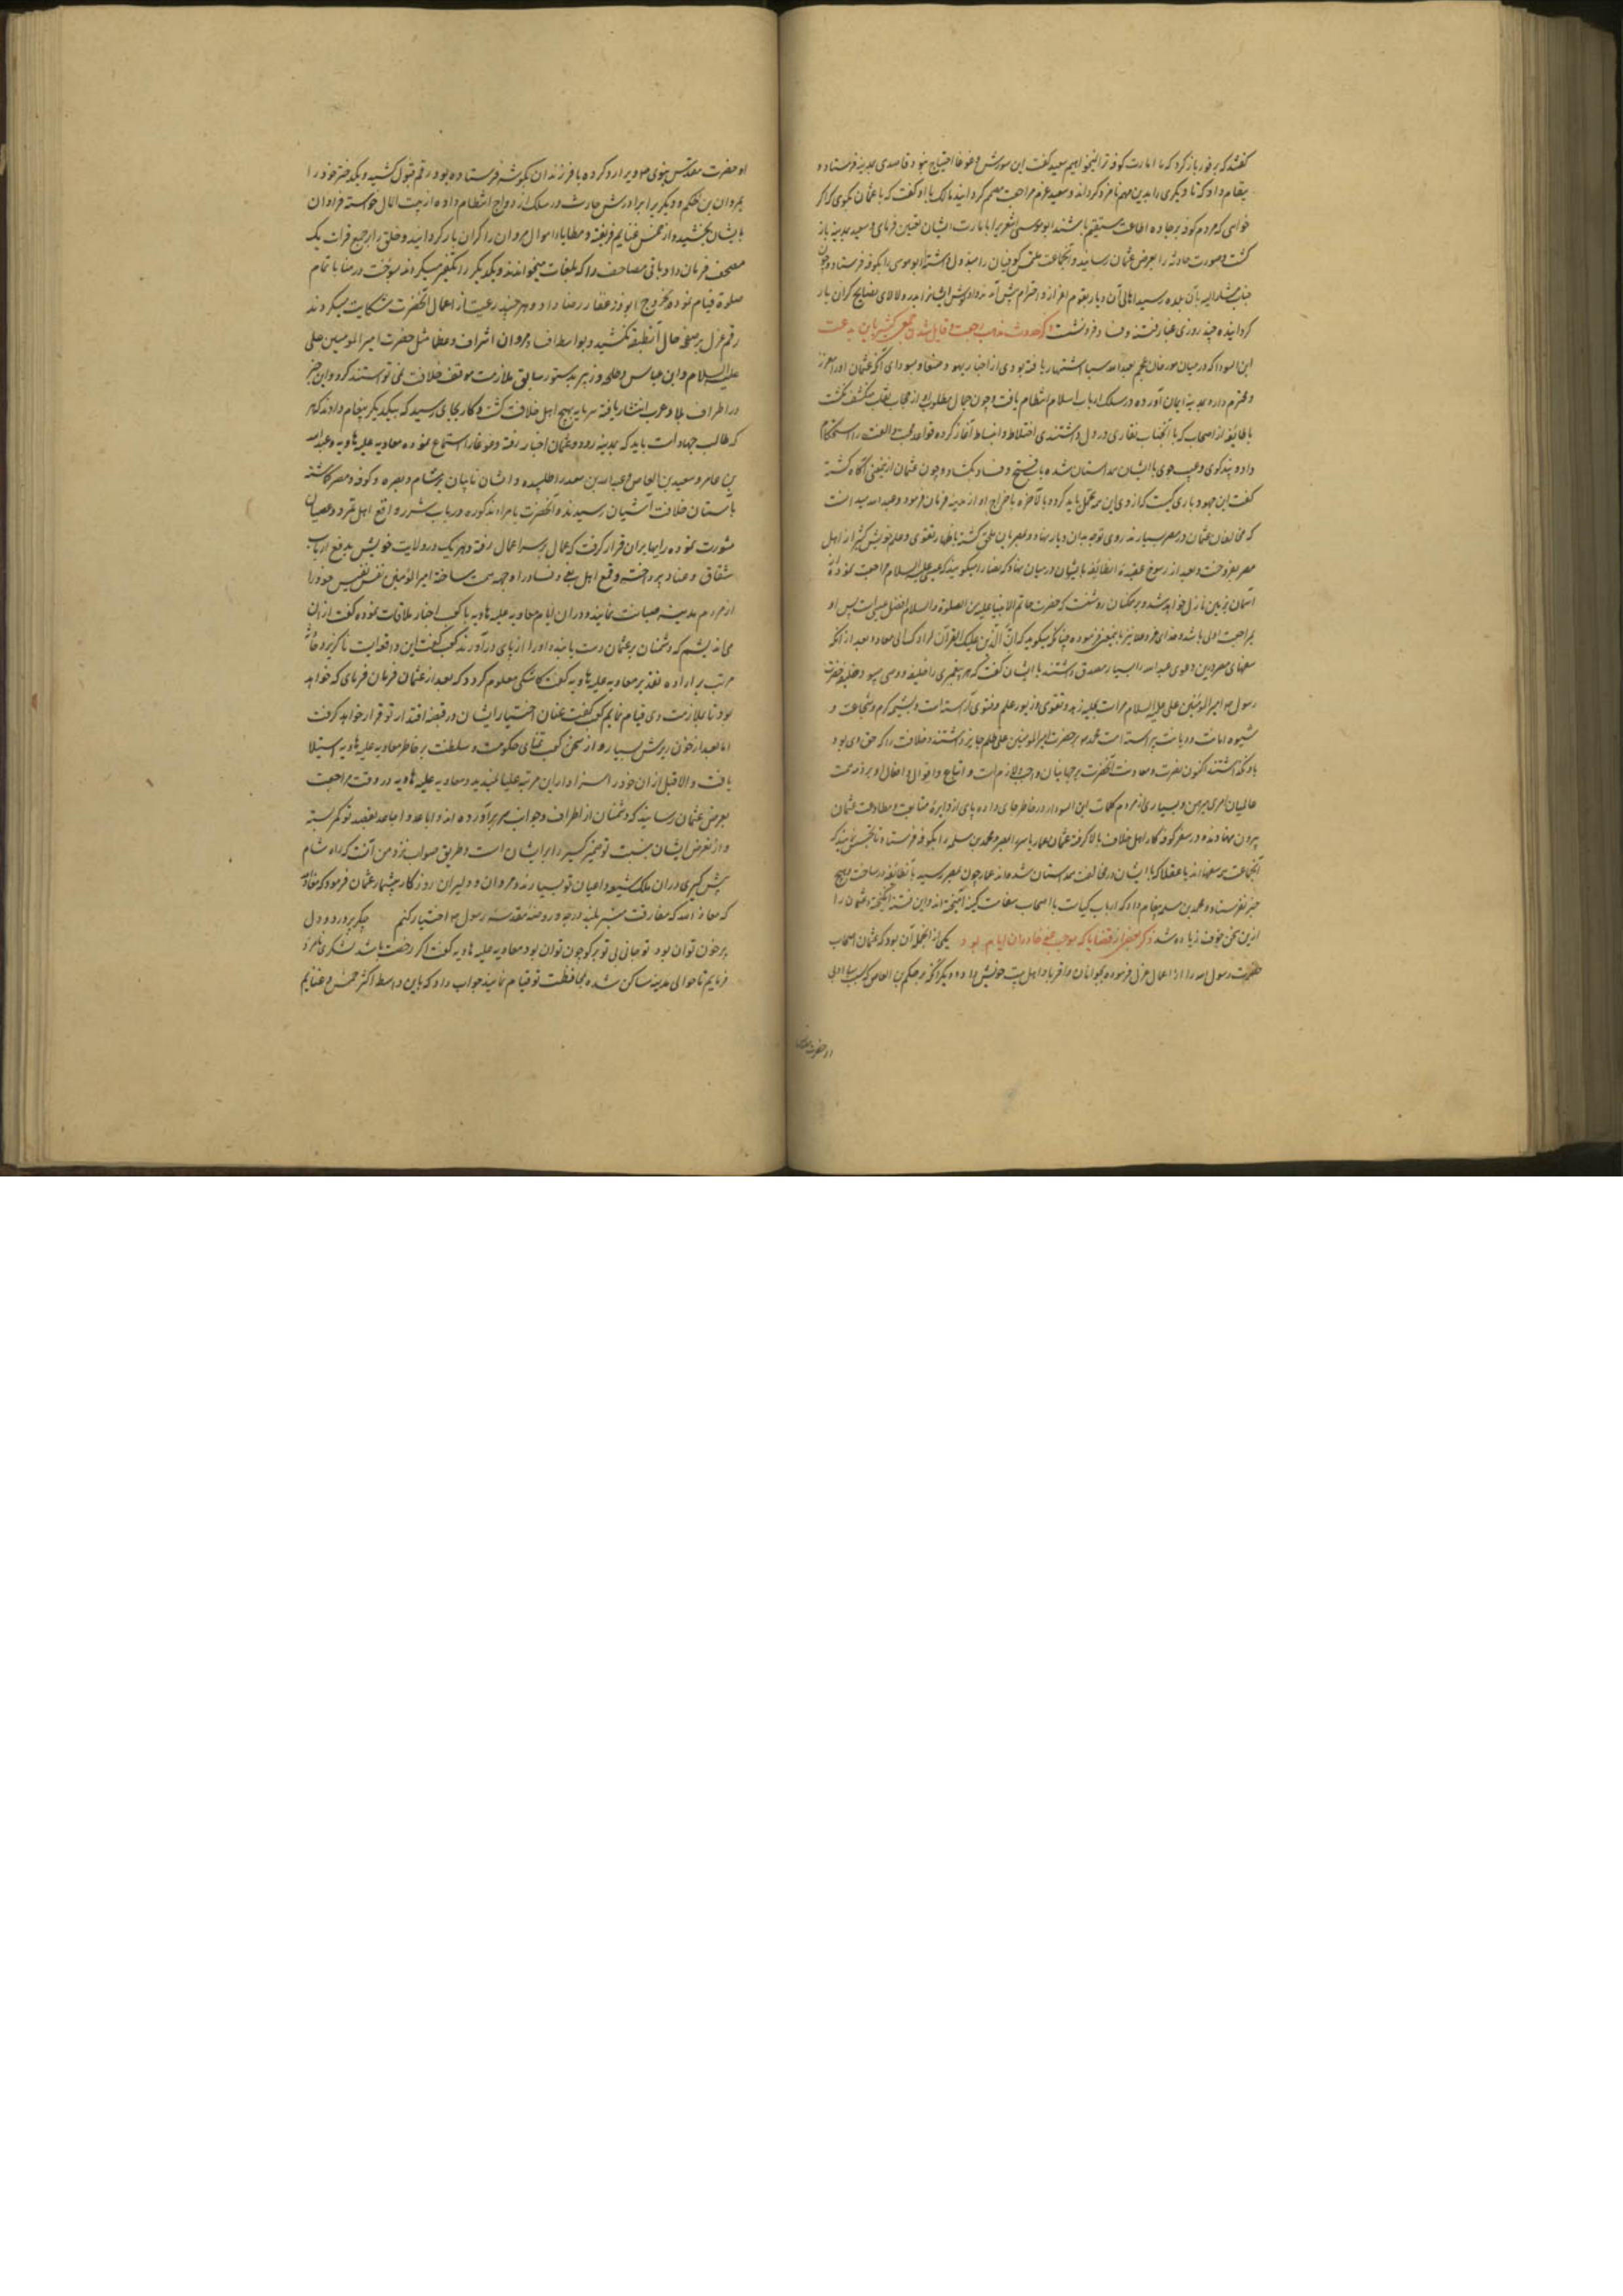 گفتند که بر فور باز گرد که ما امارت کوفه ترا نیخواهیم سعید گفت این سورش و غوغا احتیاج نبود قاصدی بمدینه فرستاده و
پیغام داد که تا دیگری را بدین مهم نامزد کرداند و سعید عزم مراجعت مصمم کردانید مالک با او گفت که با عثمان بکوی که اگر
خواهی که مردم کوفه بر جاده اطاعت مستقیم باشند ابو موسی اشعری را بامارت ایشان تعیین فرمای و سعید بمدینه باز
کشت و صورت حادثه را بعرض عثمان رسانید و آنجناب ملتمس کوفیان را مبذول داشته ابو موسی را بکوفه فرستاد و چون
جناب مشار الیه بآن بلده رسید اهالی آن دیار بقوم اعزاز و احترام پیش آمدند و او گوش ایشانرا بدرر و لالای نصایح گران بار
کردانیده چند روزی غبار فتنه و فساد فرو نشست ذکر حدوث مذهب رجعت و قایل شدن جمعی کثیر بان بدعت
ابن السودا که در میان مورخان عجم بعبد الله سبا اشتهار یافته بودی از احبار یهود صنعا و بسودای آنکه عثمان او را معزز
و محترم دارد بمدینه ایمان آورده در سلک ارباب اسلام انتظام یافت و چون جمال مطلوب او از حجاب نقاب منکشف نکشت
با طایفه از اصحاب که با آنجناب نقاری در دل داشتندی اختلاط و انبساط آغاز کرده قواعد محبت و الفت را استحکام
داد و بدگوی و عیب جوی با ایشان همداستان شده باب فتنه و فساد بکشاد و چون عثمان از یمعنی آگاه گشته
گفت این جهود باری کیست که از وی این همه تحمل باید کرد و بالآخره باخراج او از مدینه فرمان فرمود و عبد الله میدانست
که مخالفان عثمان در مصر بسیارند روی توجه بدان دیار نهاد و بمصریان ملحق گشته باظهار تقوی و علم خویش کثیر از اهل
مصر بفریفت و بعد از رسوخ عقیده آنطایفه با ایشان در میان نهاد که نصارا میگویند که عیسی علیه السلام مراجعت نموده از
آسمان بزمین نازل خواهد شد و بر همکنان روشنست که حضرت خاتم الانبیا علیه من الصلوة والسلام افضل از عیسی است پس او
بمراجعت اولی باشد و خدای عز و علا نیز باینمعنی فرموده چنانکه میگوید که ان الذی فرض علیک القرآن لرادک الی معاد و بعد از آنکه
سفهای مصر درین دعوی عبد الله را بسیار مصدق داشتند با ایشان گفت که هر پیغمبری را خلیفه و وصی میبود و خلیفه حضرت
رسول صم امیر المؤمنین علی علیه السلام مراتب بحلیه زهد و تقوی و زیور علم و فتوی آراسته است و بشیمه کرم و شجاعت و
شیوه امانت و دیانت پیراسته است محمد صم بر حضرت امیر المومنین علی ظلم جایز داشتند و خلافت را که حق وی بود
باو نگذاشتند اکنون نصرت و معاونت آنحضرت بر جهانیان واجب و لازم است و اتباع و اقوال و افعال او بر ذمه همت
عالمیان امری مبرهن و بسیاری از مردم کلمات ابن السودا را در خاطر جای داده پای از دایره متابعت و مطاوعت عثمان
بیرون نهادند و در سفر کوفه کار اهل خلاف بالا گرفته عثمان عمار یاسر را بمصر و محمد بن مسلمه را بکوفه فرستاد تا تجسس نمایند که
آنجماعت همه سفهااند یا عقلا که با ایشان در مخالفت همداستان شده‌اند عمار چون بمصر رسید با آنطایفه در ساخت و هیچ
خبر نفرستاد و محمد بن مسلمه پیغام داد که ارباب کیاست با اصحاب سفاهت آمیخته اند و این فتنه انگیخته و عثمان را
ازین سخن خوف زیاده شد ذکر بعضی از قضایا که موجب طعن خلق در آن ایام بود یکی از انجمله آن بود که عثمان اصحاب
حضرت رسول الله را از اعمال عزل فرموده بجوانان و اقربا و اهل بیت خویش داد و دیگر آنکه مر حکم بن العاص که بسبب بی ادبی
از حضرت مقدس
او حضرت مقدس نبوی صم ویرا رد کرده با فرزندان بگوشه فرستاده بود رقم قبول کشید و یکدختر خود را
بمروان بن الحکم و دیگریرا برادرش حارث در سلک ازدواج انتظام داده از بیت المال خواسته فراوان
بایشان بخشید و از خمس غنایم فریفته و عطایا و اموال مروان را گران بار کردانید و خلق را بر جمع قرات یک
مصحف فرمان داد و باقی مصاحف را که بلغات میخواندند و یکدیگر را تکفیر میکردند بسوخت در منا با تمام
صلوة قیام نموده بخروج ابوذر غفار رضا داد و هر چند رعیت از اعمال آنحضرت شکایت میکردند
رقم عزل بر صحیفه حال آنطبقه نکشید و بواسطه افساد مروان اشراف و عظما مثل حضرت امیر المومنین علی
علیه السلام و ابن عباس و طلحه و زبیر بدستور سابق ملازمت موقف خلافت نمی توانستند کرد و این خبر
در اطراف بلاد عرب انتشار یافته سرمایه تهییج اهل خلافت گشت و کار بجای رسید که بیکدیگر پیغام دادند که هر
که طالب جهاد است باید که بمدینه رود و عثمان اخبار رفته و غوغا را استماع نموده معاویه علیه الهاویه و عبد الله
بن عامر و سعید بن العاص و عبد الله بن سعد را طلبیده و ایشان نایبان بر شام و بصره و کوفه و مصر گماشته
بآستان خلافت آشیان رسیدند و آنحضرت با مراء مذکوره در باب شرر و اقع اهل تمرد و عصیان
مشورت نموده رایها بران قرار گرفت که عمال بر سر اعمال رفته و هر یک در ولایت خویش بدفع ارباب
شقاق و عناد پرداخته و قمع اهل بغی و فساد را وجهه همت ساخته امیر المؤمنین نفس نفیس خود را
از مردم مدینه صیانت نمایند و دران ایام معاویه علیه الهاویه با کعب احبار ملاقات نموده گفت ازان
می اندیشم که دشمنان بر عثمان دست یابند و او را از پای در آورند کعب گفت این واقعه ایست ناگزیر و حادثه
مرتب بر اراده تقدیر معاویه علیه الهاویه گفت کاشکی معلوم گردد که بعد از عثمان فرمان فرمای که خواهد
بود تا ملازمت وی قیام نمایم کعب گفت عنان اختیار ایشان در قبضه اقتدار تو قرار خواهد گرفت
اما بعد از خون ریزش بسیار و از سخن کعب تمنای حکومت و سلطنت بر خاطر معاویه علیه الهاویه استیلا
یافت و الا قبل ازان خود را سزاوار این مرتبه علیا نمیدید و معاویه علیه الهاویه در وقت مراجعت
بعرض عثمان رسانید که دشمنان از اطراف و جوانب سر برآورده اند و اباعد و اجانب بقصد تو کمر بسته
و از تعرض ایشان نسبت تو ضمیر کسیر را برایشان است و طریق صواب نزد من آنست که راه شام
پیش گیری دران ملک شیعه و اعیان تو بسیارند و مردان و دلیران روزگار بیشمار عثمان فرمود که معاذ الله
که معاذ الله که مفارقت منبر بلند درجه و روضه مقدسه رسول صم اختیار کنم جگر پر درد و دل
پر خون توان بود تو جانی بی تو بر گو چون توان بود معاویه علیه الهاویه گفت اگر رخصت باشد لشکری نامزد
فرمایم تا حوالی مدینه ساکن شده بمحافظت تو قیام نمایند جواب داد که باین واسطه اکثر خمس و غنایم